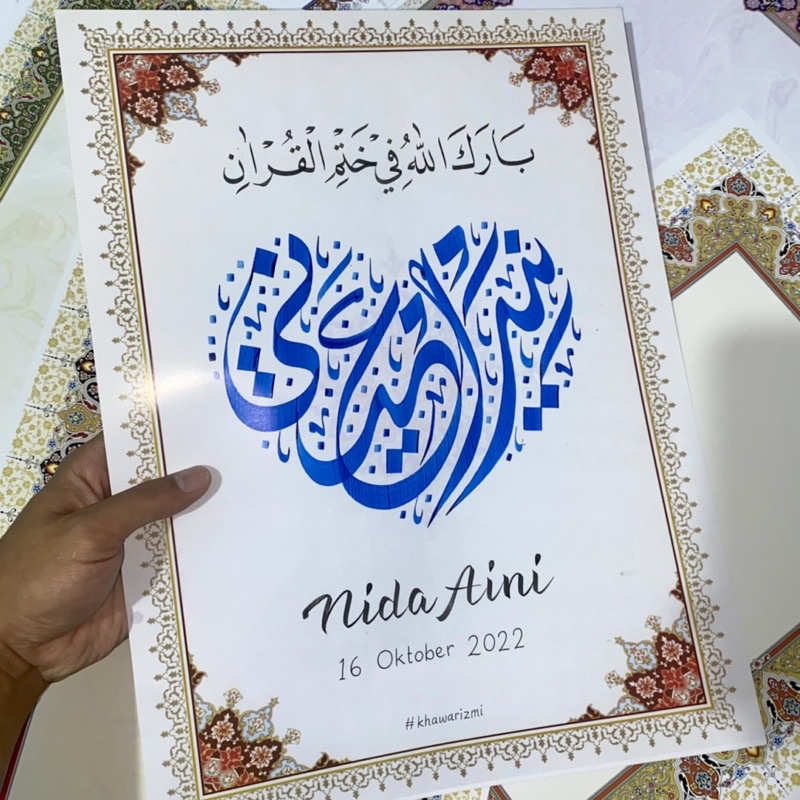 بَارَكَ اللهُ فِيْ خَتْمِ الْقُرْاٰنِ
Nida Aini
16 Oktober 2022
#khawarizmi